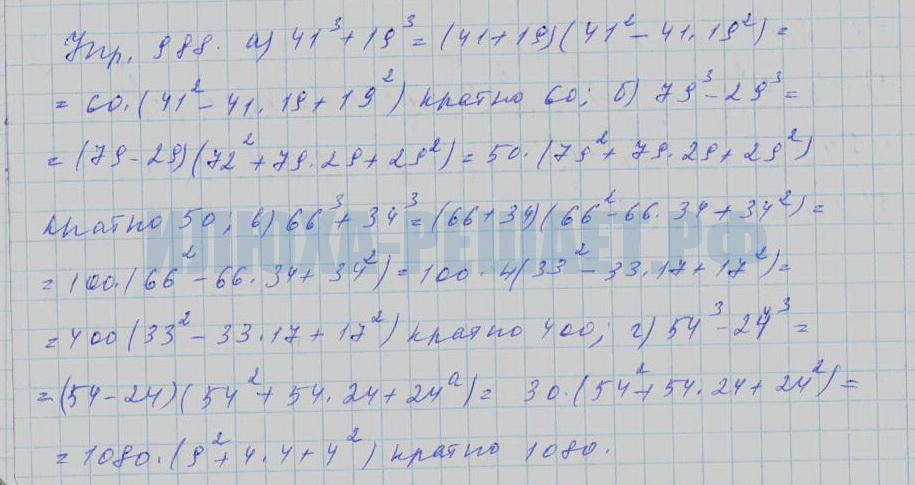 Упр. 988. а) 41³ + 19³ = (41 + 19)(41² - 41 · 19²) =
= 60 · (41² - 41 · 19 + 19²) кратно 60; б) 79³ - 29³ =
= (79 - 29)(72² + 79 · 29 + 29²) = 50 · (79² + 79 · 29 + 29²)
кратно 50; в) 66³ + 34³ = (66 + 34)(66² - 66 · 34 + 34²) =
ИЛЮХА-РЕШАЕТ.РФ
= 100 · (66² - 66 · 34 + 34²) = 100 · 4(33² - 33 · 17 + 17²) =
= 400 (33² - 33 · 17 + 17²) кратно 400; г) 54³ - 24³ =
= (54 - 24)(54² + 54 · 24 + 24²) = 30 · (54² + 54 · 24 + 24²) =
= 1080 · (9² + 4 · 4 + 4²) кратно 1080.